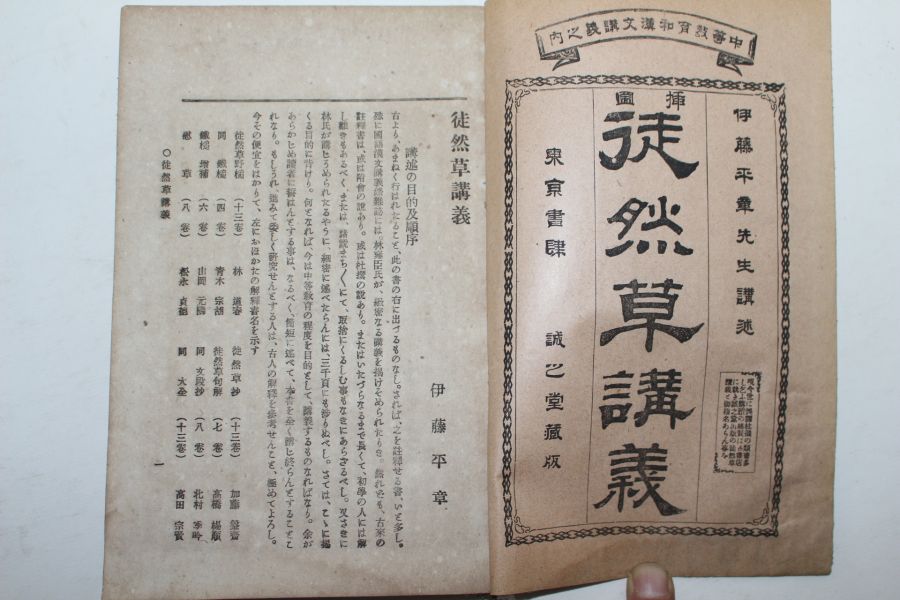 中等教育和漢文講義之内
伊藤平章先生講述
挿圖
徒然草講義
東京書肆 誠之堂藏版
徒然草講義
伊藤平章
講述の目的及順序
古より、あまねく行はれたること、此の書の右に出づるものなし。されば、之を註釋せる書、いと多し。
殊に國語漢文講義錄雜誌には、林甕臣氏が、緻密なる講義を掲げそめられたりき。然れども、古來の
註釋書は、或は附會の説あり。或は杜撰の説あり。またはいたづらなるまで長くて、初學の人には解
し難きもあるべく、または、諸説まち〱にて、取捨にくるしむ事もなきにあらざるべし。又さきに
林氏が講じそめられたるやうに、細密に述べたらんには、三千頁にも渉りぬべし。さては、こゝに掲
くる目的に背けり。何となれば、今は中等教育の程度を目的として、講義するものなればなり。余が
あらかじめ讀者に誓はんとする事は、なるべく、簡短に述べて、本書を全く講じ終らんとすることこ
れなり。もしうれ、進みて委しく研究せんとする人は、古人の解釋を參考せんこと、極めてよろし。
今その便宜をはかりて、左におほかたの解釋書名を示す
徒然草野槌 (十三卷) 林 道春 徒然草抄 (十三卷) 加藤 盤齋
同 鐵槌 (四卷) 青木 宗胡 徒然草句解 (七卷) 高橋
鐵槌 增補 (六卷) 山岡 元隣 同 文段抄 (八卷) 北村 季吟
慰草 (八卷) 松永 貞德 同 大全 (十三卷) 高田 宗賢
〇徒然草講義
一